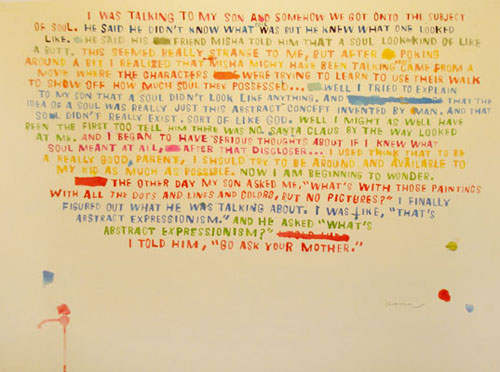 I WAS TALKING TO MY SON AND SOMEHOW WE GOT ONTO THE SUBJECT
OF SOUL. HE SAID HE DIDN'T KNOW WHAT WAS BUT HE KNEW WHAT ONE LOOKED
LIKE. HE SAID HIS FRIEND MISHA TOLD HIM THAT A SOUL LOOK KIND OF LIKE
A BUTT. THIS SEEMED REALLY STRANGE TO ME, BUT AFTER POKING
AROUND A BIT I REALIZED THAT MISHA MIGHT HAVE BEEN TALKING CAME FROM A
MOVIE WHERE THE CHARACTERS WERE TRYING TO LEARN TO USE THEIR WALK
TO SHOW OFF HOW MUCH SOUL THEY POSSESSED... WELL I TRIED TO EXPLAIN
TO MY SON THAT A SOUL DIDN'T LOOK LIKE ANYTHING, AND THAT THE
IDEA OF A SOUL WAS REALLY JUST THIS ABSTRACT CONCEPT INVENTED BY MAN. AND THAT
SOUL DIDN'T REALLY EXIST. SORT OF LIKE GOD. WELL I MIGHT AS WELL HAVE
BEEN THE FIRST TOO TELL HIM THERE WAS NO SANTA CLAUS BY THE WAY LOOKED
AT ME. AND I BEGAN TO HAVE SERIOUS THOUGHTS ABOUT IF I KNEW WHAT
SOUL MEANT AT ALL, AFTER THAT DISCLOSER... I USED THINK THAT TO BE
A REALLY GOOD PARENT, I SHOULD TRY TO BE AROUND AND AVAILABLE TO
MY KID AS MUCH AS POSSIBLE. NOW I AM BEGINNING TO WONDER.
THE OTHER DAY MY SON ASKED ME, "WHAT'S WITH THOSE PAINTINGS
WITH ALL THE DOTS AND LINES AND COLORS, BUT NO PICTURES?" I FINALLY
FIGURED OUT WHAT HE WAS TALKING ABOUT. I WAS LIKE, "THAT'S
ABSTRACT EXPRESSIONISM." AND HE ASKED "WHAT'S
ABSTRACT EXPRESSIONISM?"
I TOLD HIM, "GO ASK YOUR MOTHER."